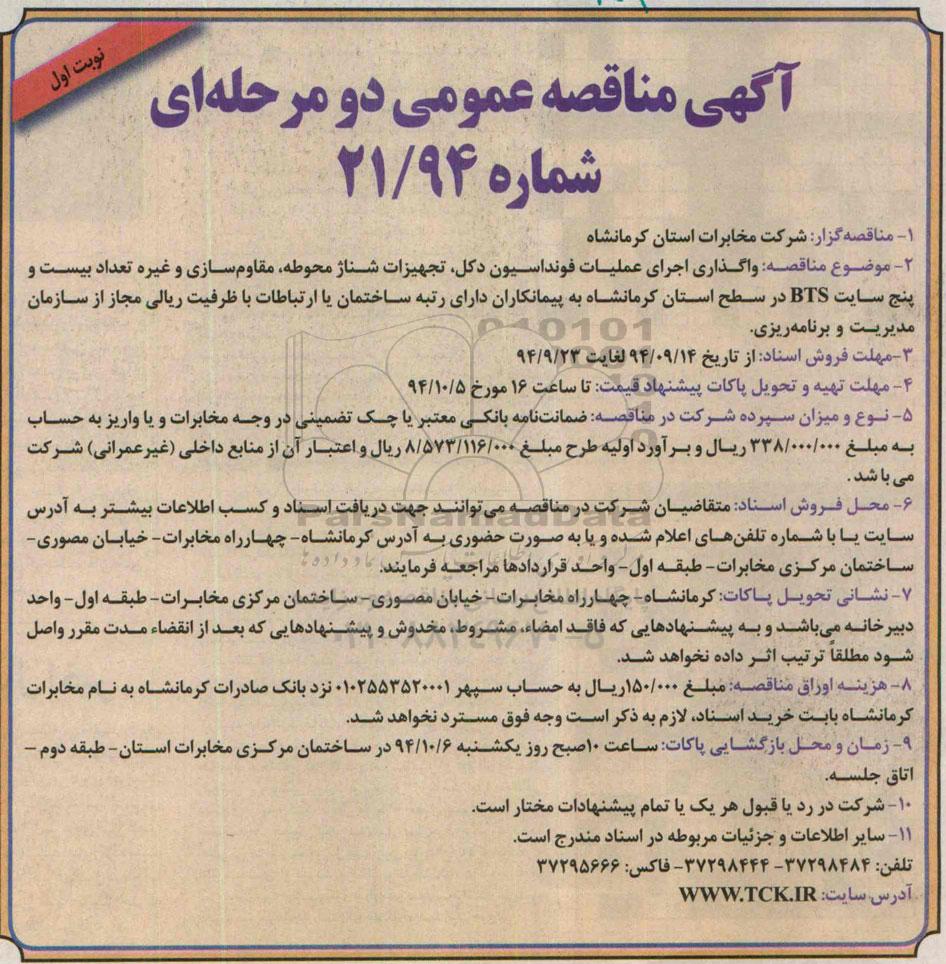 نوبت اول
آگهی مناقصه عمومی دو مرحله‌ای
شماره ۲۱/۹۴
۱- مناقصه‌گزار: شرکت مخابرات استان کرمانشاه
۲- موضوع مناقصه: واگذاری اجرای عملیات فونداسیون دکل، تجهیزات شناژ محوطه، مقاوم‌سازی و غیره تعداد بیست و
پنج سایت BTS در سطح استان کرمانشاه به پیمانکاران دارای رتبه ساختمان یا ارتباطات با ظرفیت ریالی مجاز از سازمان
مدیریت و برنامه‌ریزی.
۳-مهلت فروش اسناد: از تاریخ ۹۴/۰۹/۱۴ لغایت ۹۴/۹/۲۳
۴- مهلت تهیه و تحویل پاکات پیشنهاد قیمت: تا ساعت ۱۶ مورخ ۹۴/۱۰/۵
۵- نوع و میزان سپرده شرکت در مناقصه: ضمانت‌نامه بانکی معتبر یا چک تضمینی در وجه مخابرات و یا واریز به حساب
به مبلغ ۳۳۸/۰۰۰/۰۰۰ ریال و برآورد اولیه طرح مبلغ ۸/۵۷۳/۱۱۶/۰۰۰ ریال و اعتبار آن از منابع داخلی (غیرعمرانی) شرکت
می باشد.
۶- محل فروش اسناد: متقاضیان شرکت در مناقصه می‌توانند جهت دریافت اسناد و کسب اطلاعات بیشتر به آدرس
سایت یا با شماره تلفن‌های اعلام شده و یا به صورت حضوری به آدرس کرمانشاه- چهارراه مخابرات- خیابان مصوری-
ساختمان مرکزی مخابرات- طبقه اول- واحد قراردادها مراجعه فرمایند.
۷- نشانی تحویل پاکات: کرمانشاه- چهارراه مخابرات- خیابان مصوری- ساختمان مرکزی مخابرات- طبقه اول- واحد
دبیرخانه می‌باشد و به پیشنهادهایی که فاقد امضاء، مشروط، مخدوش و پیشنهادهایی که بعد از انقضاء مدت مقرر واصل
شود مطلقاً ترتیب اثر داده نخواهد شد.
۸- هزینه اوراق مناقصه: مبلغ ۱۵۰/۰۰۰ریال به حساب سپهر ۰۱۰۲۵۵۳۵۲۰۰۰۱ نزد بانک صادرات کرمانشاه به نام مخابرات
کرمانشاه بابت خرید اسناد، لازم به ذکر است وجه فوق مسترد نخواهد شد.
۹- زمان و محل بازگشایی پاکات: ساعت ۱۰صبح روز یکشنبه ۹۴/۱۰/۶ در ساختمان مرکزی مخابرات استان- طبقه دوم –
اتاق جلسه.
۱۰- شرکت در رد یا قبول هر یک یا تمام پیشنهادات مختار است.
۱۱- سایر اطلاعات و جزئیات مربوطه در اسناد مندرج است.
تلفن: ۳۷۲۹۸۴۸۴- ۳۷۲۹۸۴۴۴- فاکس: ۳۷۲۹۵۶۶۶
آدرس سایت: WWW.TCK.IR
ParsNamadData